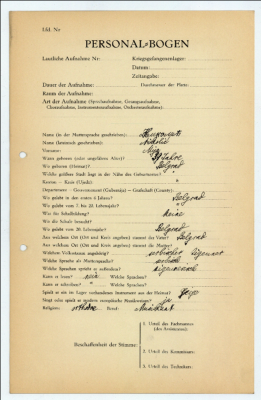 Lfd. Nr
PERSONAL-BOGEN
Lautliche Aufnahme Nr.: Kriegsgefangenenlager:
Datum:
Zeitangabe:
Dauer der Aufnahme: Durchmesser der Platte:
Raum der Aufnahme:
Art der Aufnahme (Sprechaufnahme, Gesangsaufnahme,
Choraufnahme, Instrumentenaufnahme, Orchesteraufnahme):
Name (in der Muttersprache geschrieben):
Name (lateinisch geschrieben):
Vorname:
Wann geboren (oder ungefähres Alter)? Jahre
Wo geboren (Heimat)? Belgrad
Welche größere Stadt liegt in der Nähe des Geburtsortes?
Kanton – Kreis (Ujedz):
Department – Gouvernement (Gubernija) – Grafschaft (County): Belgrad
Wo gelebt in den ersten 6 Jahren?
Wo gelebt vom 7. bis 20. Lebensjahr?
Was für Schulbildung? keine
Wo die Schule besucht?
Wo gelebt vom 20. Lebensjahr? Belgrad
Aus welchem Ort (Ort und Kreis angeben) stammt der Vater? Belgrad
Aus welchem Ort (Ort und Kreis angeben) stammt die Mutter?
Welchem Volksstamm angehörig?
Welche Sprache als Muttersprache?
Welche Sprachen spricht er außerdem?
Kann er lesen? Welche Sprachen?
Kann er schreiben? Welche Sprachen?
Spielt er ein im Lager vorhandenes Instrument aus der Heimat? Geige
Singt oder spielt er modern europäische Musikweisen? ja
Religion: Beruf: Musikant
Beschaffenheit der Stimme:
1. Urteil des Fachmannes
(des Assistenten):
2. Urteil des Kommissars:
3. Urteil des Technikers: